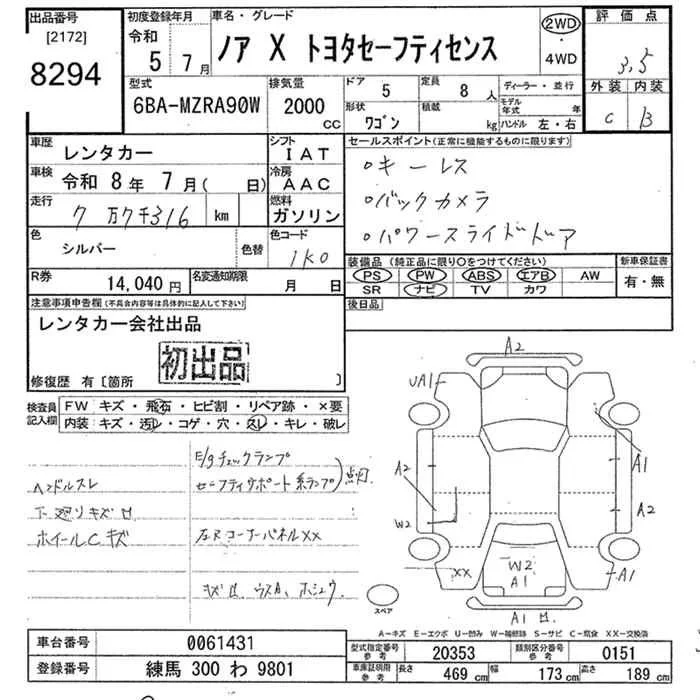 出品番号
[2172]
8294
初度登録年月
令和
5 7月
車名・グレード
ノア X トヨタセーフティセンス
2WD
・
4WD
評価点
3.5
外装 内装
C B
型式
6BA-MZRA90W
排気量
2000 cc
ドア 5
定員 8 人
形状 ワゴン
積載 kg
ディーラー・並行
モデル年式 年
ハンドル 左・右
車歴 レンタカー
シフト IAT
車検 令和 8年 7月( 日)
冷房 AAC
走行 7万7千316 km
燃料 ガソリン
色 シルバー 色替
色コード 1K0
R券 14,040 円
名変通知期限 月 日
セールスポイント(正常に機能するものに限ります)
・キーレス
・バックカメラ
・パワースライドドア
装備品(純正品に限り○をつけてください)
PS PW ABS エアB AW
SR ナビ TV カワ
新車保証書
有・無
後日品
注意事項申告欄(不具合内容等は具体的に記入して下さい)
レンタカー会社出品
初出品
修復歴 有〔箇所 〕
検査員記入欄
FW キズ・飛石・ヒビ割・リペア跡・×要
内装 キズ・汚レ・コゲ・穴・スレ・キレ・破レ
E/gチェックランプ
ハンドルスレ
セーフティサポート系ランプ)点灯
下廻りキズ
ホイールCキズ
左Rコーナーパネル××
A2
UA1
A1
A2
A2
W2
W2
A1
XX
A1
A1
スペア
A-キズ E-エクボ U-凹み W-補修跡 S-サビ C-腐食 XX-交換済
車台番号 0061431
登録番号 練馬 300 わ 9801
型式指定番号 参考 20353
類別区分番号 参考 0151
車庫証明用 参考 長さ 469 cm 幅 173 cm 高さ 189 cm